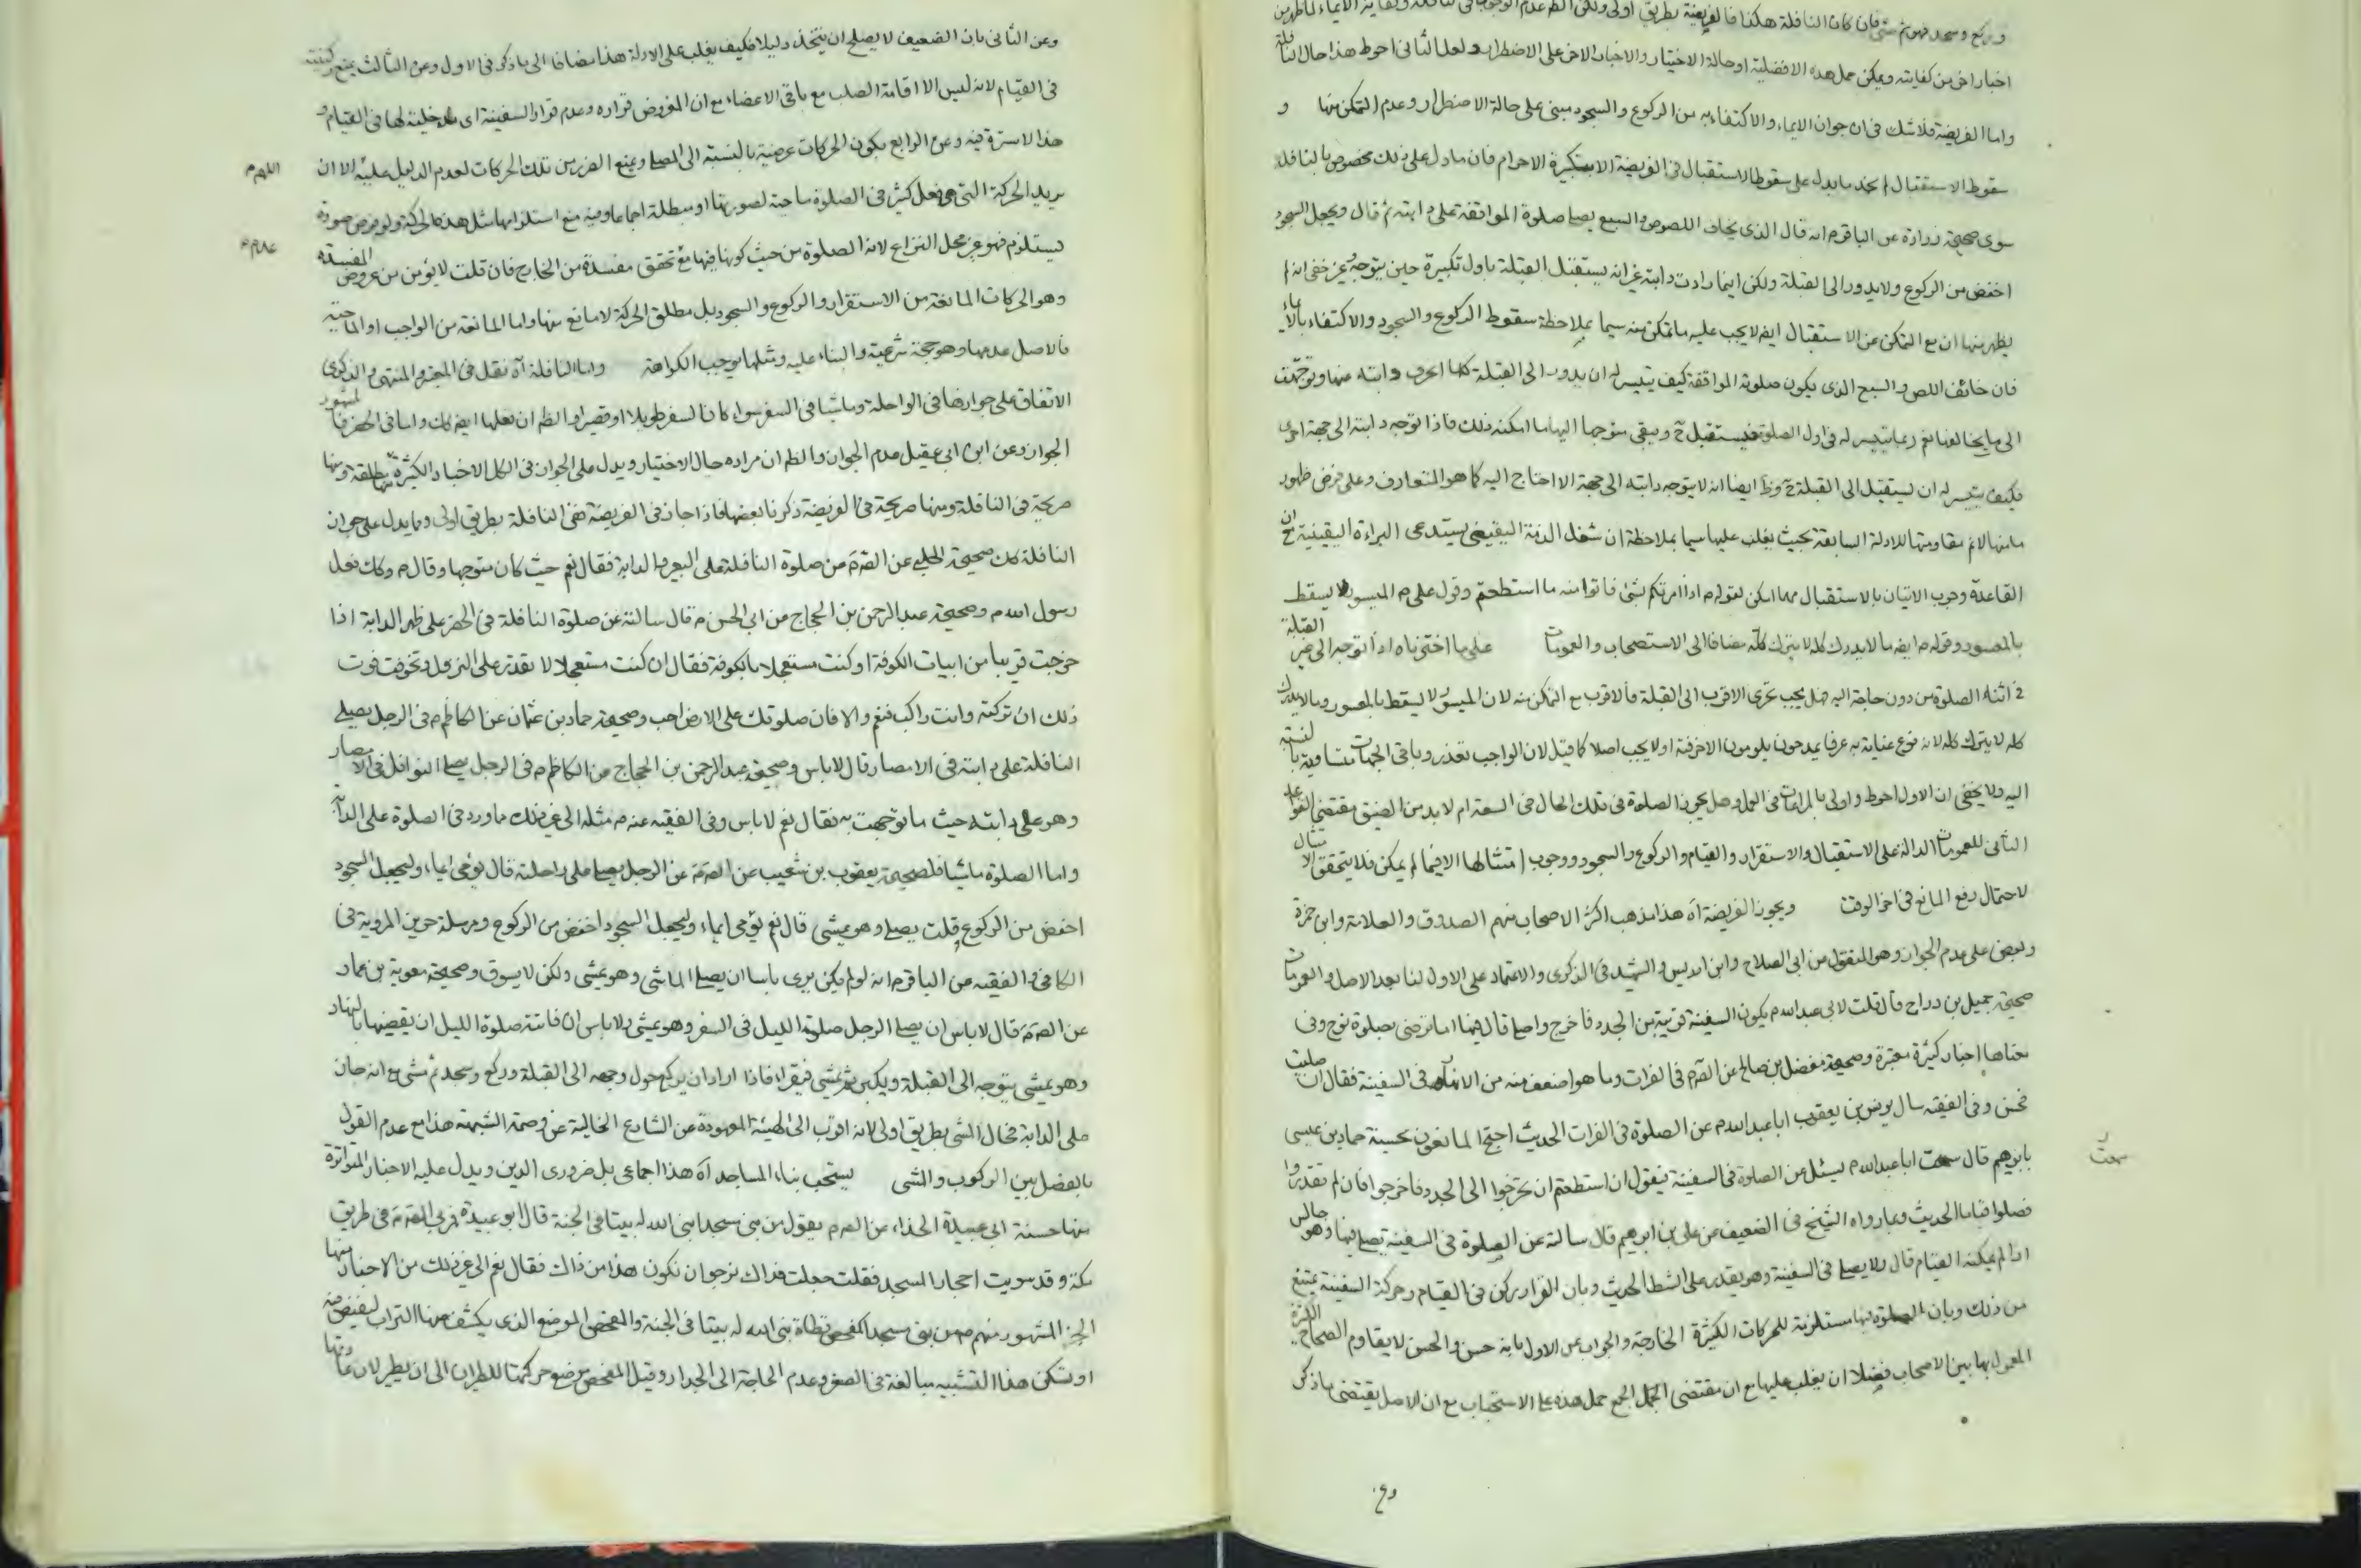 وركع وسجد فهو ثم مشى فان كان النافلة هكذا فالفريضة بطريق اولى ولكن الظ عدم الوجوب فى النافلة وكفاية الايماء لما ظهر من
اخبار اخر من كفايته ويمكن حمل هذه الافضلية او حالة الاختيار والاخبار الاخر على الاضطرار ولعل الثانى احوط هذا حال النافلة
واما الفريضة فلا شك فى ان جواز الايماء والاكتفاء به من الركوع والسجود مبنى على حالة الاضطرار وعدم التمكن منها و
سقوط الاستقبال لم نجد ما يدل على سقوط الاستقبال فى الفريضة الا بتكبيرة الاحرام فان ما دل على ذلك مخصوص بالنافلة
سوى صحيحة زرارة عن الباقر م انه قال الذى يخاف اللصوص والسبع يصلى صلوة المواقفة على دابته ثم قال ويجعل السجود
اخفض من الركوع ولا يدور الى القبلة ولكن اينما دارت دابته غير انه يستقبل القبلة باول تكبيرة حين يتوجه وغير خفى انه لم
يظهر منها ان مع التمكن عن الاستقبال ايضا لا يجب عليه ما تمكن منه سيما بملاحظة سقوط الركوع والسجود والاكتفاء بالايماء
فان خائف اللص والسبع الذى يكون صلوته المواقفة كيف يتيسر له ان يدور الى القبلة كلما انحرف دابته عنها وتوجهت
الى ما يخالفها نعم ربما يتيسر له فى اول الصلوة فيستقبل ح ويبقى متوجها اليها ما امكنه ذلك فاذا توجه دابته الى جهة اخرى
فكيف يتيسر له ان يستقبل الى القبلة ح وظ ايضا انه لا يتوجه دابته الى جهة الا احتاج اليه كما هو المتعارف وعلى فرض ظهور
ما منها لا نم مقاومتها للادلة السابقة بحيث يغلب عليها سيما بملاحظة ان شغل الذمة اليقينى يستدعى البراءة اليقينية مع ان
القاعدة وجوب الاتيان بالاستقبال مهما امكن لقوله م اذا امرتكم بشئ فاتوا منه ما استطعتم وقول على م الميسور لا يسقط
بالمعسور وقوله م ايضا ما لا يدرك كله لا يترك كله مضافا الى الاستصحاب والعمومات على ما اخترناه اذا توجه الى غير القبلة
فى اثناء الصلوة من دون حاجة اليه هل يجب تحرى الاقرب الى القبلة فالاقرب مع التمكن منه لان الميسور لا يسقط بالمعسور وما لا يدرك
كله لا يترك كله لانه نوع عناية به عرفا يمدحون يلومون الاخر فيه او لا يجب اصلا كما قيل لان الواجب تعذر وباقى الجهات متساوية بالنسبة
اليه ولا يخفى ان الاول احوط واولى بالمراعات فى العمل وهل يجوز الصلوة فى تلك الحال فى السعة ام لا بد من الضيق مقتضى القواعد
الثانى للعمومات الدالة على الاستقبال والاستقرار والقيام والركوع والسجود ووجوب امتثالها الا فيما لم يمكن فلا يتحقق الامتثال
لاحتمال رفع المانع فى اخر الوقت ويجوز الفريضة آه هذا مذهب اكثر الاصحاب منهم الصدوق والعلامة وابن حمزة
وبعض على عدم الجواز وهو المنقول من ابى الصلاح وابن ادريس والشهيد فى الذكرى والاعتماد على الاول لنا بعد الاصل والعمومات
صحيحة جميل بن دراج قال قلت لابى عبد الله م يكون السفينة قريبة من الجدد فاخرج واصلى قال فيها اما ترضى بصلوة نوح وفى
معناها اخبار كثيرة معتبرة وصحيحة مفضل بن صالح عن الصم فى الفرات وما هو اضعف منه من الانهار فى السفينة فقال ان صليت
فحسن وفى الفقيه سال يونس بن يعقوب ابا عبد الله م عن الصلوة فى الفرات الحديث احتج المانعون بحسنة حماد بن عيسى
بابرهيم قال سمعت ابا عبد الله م يسئل عن الصلوة فى السفينة فيقول ان استطعتم ان تخرجوا الى الجدد فاخرجوا فان لم تقدروا
سمعت
فصلوا قياما الحديث وبما رواه الشيخ فى الضعيف عن على بن ابرهيم قال سالته عن الصلوة فى السفينة يصلى فيها وهو جالس
اذا لم يمكنه القيام قال ولا يصلى فى السفينة وهو يقدر على الشط الحديث وبان القرار ركن فى القيام وحركة السفينة يمنع
من ذلك وبان الصلوة فيها مستلزمة للحركات الكثيرة الخارجة والجواب عن الاول بانه حسن والحسن لا يقاوم الصحاح الكثيرة
المعمول بها بين الاصحاب فضلا ان يغلب عليها مع ان مقتضى الجمع حمل هذه على الاستحباب مع ان الاصل يقتضى ما ذكر
وعن
وعن الثانى بان الضعيف لا يصلح ان يتخذ دليلا فكيف يغلب على الادلة هذا مضافا الى ما ذكر فى الاول وعن الثالث بمنع ركنيته
فى القيام لانه ليس الا اقامة الصلب مع باقى الاعضاء مع ان المفروض قراره وعدم قرار السفينة اى مدخلية لها فى القيام و
هذا الاسترة فيه وعن الرابع بكون الحركات عرضية بالنسبة الى المصلى ويمنع الضرر من تلك الحركات لعدم الدليل عليه الا ان
اللهم
يريد الحركة التى هى فعل كثير فى الصلوة ماحية لصورتها او مبطلة اجماعا وفيه منع استلزامها مثل هذه الحركة ولو فرض صورة
يستلزم فهو غير محل النزاع لان الصلوة من حيث كونها فيها مع تحقق مفسدة من الخارج فان قلت لا يؤمن من عروض المفسدة
وهو الحركات المانعة من الاستقرار والركوع والسجود بل مطلق الحركة لا مانع منها واما المانعة من الواجب او الماحية
فالاصل عدمها وهو حجة شرعية والبناء عليه ومثلها يوجب الكراهة واما النافلة آه نقل فى المعتبر والمنتهى والذكرى
الاتفاق على جوازها فى الراحلة وماشيا فى السفر سواء كان السفر طويلا او قصيرا والظ ان نعلها ايضا كك واما فى الحضر فالمشهور
الجواز وعن ابن ابى عقيل عدم الجواز والظ ان مراده حال الاختيار ويدل على الجواز فى الكل الاخبار الكثيرة منها مطلقة ومنها
صريحة فى النافلة ومنها صريحة فى الفريضة ذكرنا بعضها فاذا جاز فى الفريضة ففى النافلة بطريق اولى ومما يدل على جواز
النافلة كك صحيحة الحلبى عن الصم من صلوة النافلة على البعير والدابة فقال نعم حيث كان متوجها وقال م وكك فعل
رسول الله م وصحيحة عبد الرحمن بن الحجاج من ابى الحسن م قال سالته عن صلوة النافلة فى الحضر على ظهر الدابة اذا
خرجت قريبا من ابيات الكوفة او كنت مستعجلا بالكوفة فقال ان كنت مستعجلا لا تقدر على النزول وتخوفت فوت
ذلك ان تركته وانت راكب فنعم والا فان صلوتك على الارض احب وصحيحة حماد بن عثمان عن الكاظم م فى الرجل يصلى
النافلة على دابته فى الامصار قال لا باس وصحيحة عبد الرحمن بن الحجاج من الكاظم م فى الرجل يصلى النوافل فى الامصار
وهو على دابته حيث ما توجهت به فقال نعم لا باس وفى الفقيه عنه م مثله الى غير ذلك ما ورد فى الصلوة على الدابة
واما الصلوة ماشيا فلصحيحة يعقوب بن شعيب عن الصم عن الرجل يصلى على راحلته قال يؤمى ايماء وليجعل السجود
اخفض من الركوع قلت يصلى وهو يمشى قال نعم يؤمى ايماء وليجعل السجود اخفض من الركوع ومرسلة حريز المروية فى
الكافى والفقيه من الباقر م انه لم يكن يرى باسا ان يصلى الماشى وهو يمشى ولكن لا يسوق وصحيحة معوية بن عمار
عن الصم قال لا باس ان يصلى الرجل صلوة الليل فى السفر وهو يمشى ولا باس ان فاتته صلوة الليل ان يقضيها بالنهار
وهو يمشى يتوجه الى القبلة ويكبر ثم يمشى فيقرا فاذا اراد ان يركع حول وجهه الى القبلة وركع وسجد ثم مشى مع انه جاز
على الدابة فحال المشى بطريق اولى لانه اقرب الى الهيئة المعهودة عن الشارع الخالية عن وصمة الشبهة هذا مع عدم القول
بالفصل بين الركوب والمشى يستحب بناء المساجد آه هذا اجماعى بل ضرورى الدين ويدل عليه الاخبار المتواترة
منها حسنة ابى عبيدة الحذاء عن الصم يقول من بنى مسجدا بنى الله له بيتا فى الجنة قال ابو عبيدة فمر بى الصم فى طريق
مكة وقد سويت احجارا لمسجد فقلت جعلت فداك نرجو ان تكون هذا من ذاك فقال نعم الى غير ذلك من الاخبار منها
الخبر المشهور منهم م من بنى مسجدا كمفحص قطاة بنى الله له بيتا فى الجنة والمفحص الموضع الذى يكشف عنها التراب ليبيض فيه
او تسكن هذا التشبيه مبالغة فى الصغر وعدم الحاجة الى الجدار وقيل المفحص موضع حركتها للطيران الى ان يطير لان